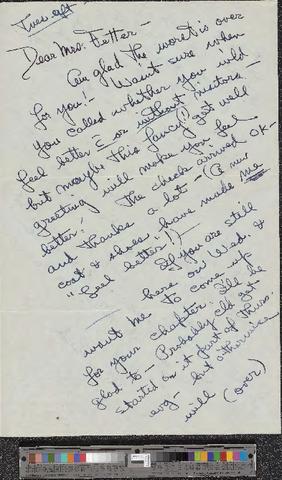 Tues aft
Dear Mrs. Fetter -
Am glad the worst is over
for you! - Wasn't sure when
you called whether you wld
feel better c or without visitors -
but maybe this fancy(!) get well
greeting will make you feel
better! The check arrived OK -
and thanks a lot - (A new
coat & shoes have made me
"feel better"!) -
If you are still
here on Wed. &
want me to come up
for your chapter. I'll be
glad to - Probably cld get
started on it part of Thurs.
evg - but otherwise
will (over)